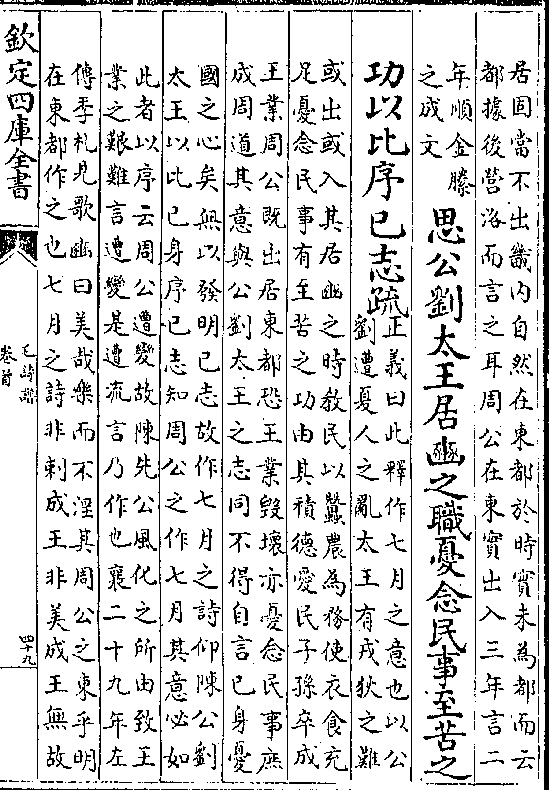 居固當不出畿内自然在東都於時實未為都而云
都據後營洛而言之耳周公在東實出入三年言二
年順金縢
之成文
思公劉太王居豳之職憂念民事至苦之
功以比序己志疏
正義曰此釋作七月之意也以公
劉遭夏人之亂太王有戎狄之難
或出或入其居豳之時教民以蠶農為務使衣食充
足憂念民事有至苦之功由其積德愛民子孫卒成
王業周公既出居東都恐王業毁壞亦憂念民事庶
成周道其意與公劉太王之志同不得自言已身憂
國之心矣無以發明已志故作七月之詩仰陳公劉
太王以比已身序已志知周公之作七月其意必如
此者以序云周公遭變故陳先公風化之所由致王
業之艱難言遭變是遭流言乃作也襄二十九年左
傳季札見歌豳曰美哉樂而不淫其周公之東乎明
在東都作之也七月之詩非刺成王非美成王無故
欽定四庫全書
毛詩譜
卷首
四十九